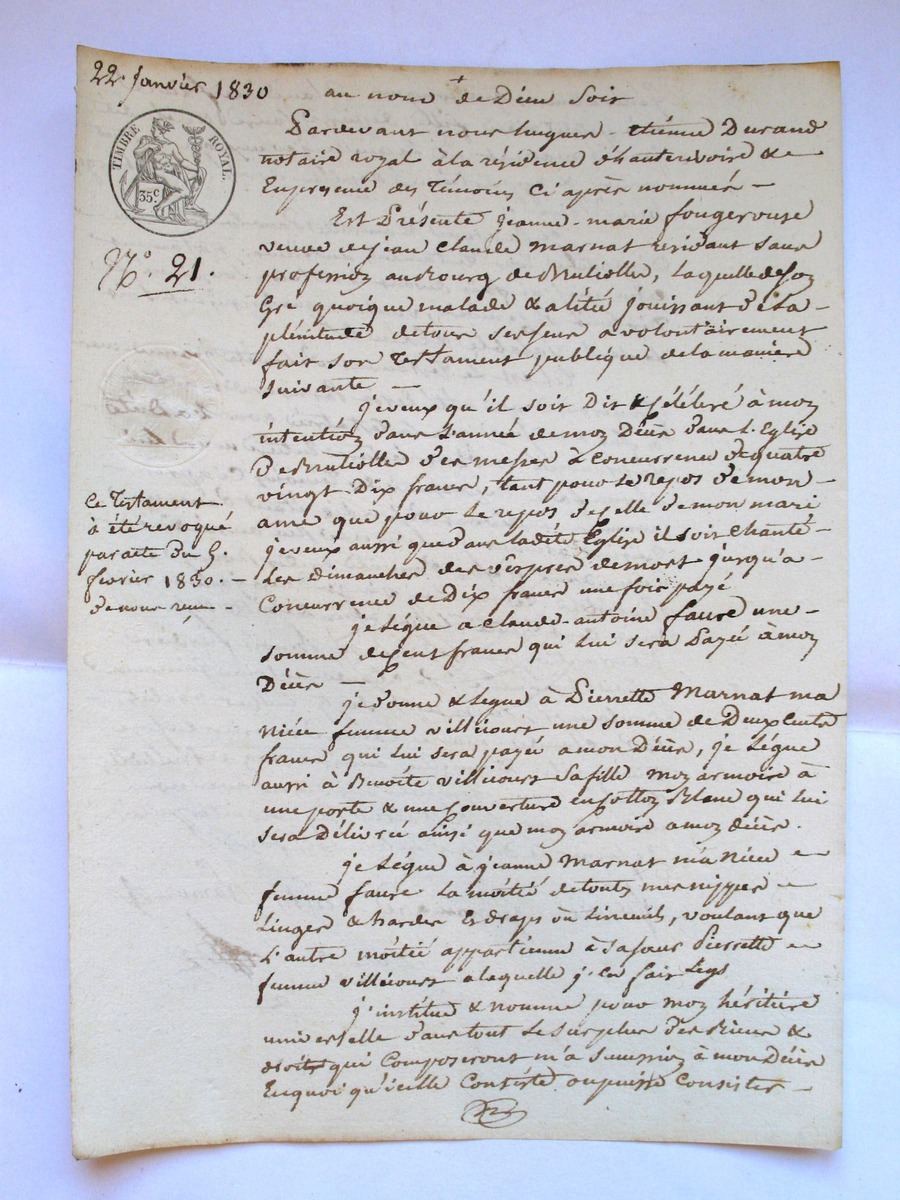 22. Janvier 1830
TIMBRE ROYAL.
35c.
N.° 21.
Ce Testament
à été revoqué
par acte du 5.
fevrier 1830. —
de nous
au nom de Dieu Soit
Pardevant nous hugues - étienne Durand
notaire royal à la résidence de hanterivoire &
En presence des Témoins Ci après nommés —
Est Présente jeanne - marie fougerouse
veuve de jean Claude Marnat residant sans
profession au Bourg de Brulliolle, laquelle de son
Gré quoique malade & alitée jouissant de la -
plénitude de tous ses sens a volontairement
fait son Testament publique de la maniere
Suivante —
je veux qu'il soit Dit & Célébré à mon
intention dans l'année de mon Décès dans l'Eglise
de Brulliolle des messes à Concurrence de quatre
vingt Dix francs, tant pour le repos de mon -
ame que pour le repos de celle de mon mari
je veux aussi que dans la dite Eglise il soit Chanté -
Les Dimanches des vêspres de mort jusqu'a -
Concurrence de Dix francs une fois payé
je Légue a Claude - antoine faure une -
somme de Cent francs qui lui sera Payé à mon
Décès —
je donne & legue à Pierrette Marnat ma
Niéce femme villécourt une somme de Deux Cents
francs qui lui sera payée a mon Décès, je Légue
aussi à Benoite villécourt sa fille mon armoire à
une porte & une Couverture en Cotton Blanc qui lui
sera Délivrée ainsi que mon armoire a mon décès.
je Légue à jeanne Marnat ma Niéce —
femme faure La moitié de toutes mes nippes —
Linges & hardes Et draps ou Linceuils, voulant que
L'autre moitié appartienne à sa sœur Pierrette —
femme villécourt a laquelle j'en fais Legs
j'institue & nomme pour mon héritiére
universelle dans tout le surplus des Biens &
droits qui Composeront ma succession à mon Décès
En quoi qu'icelle Consiste ou puisse Consister —